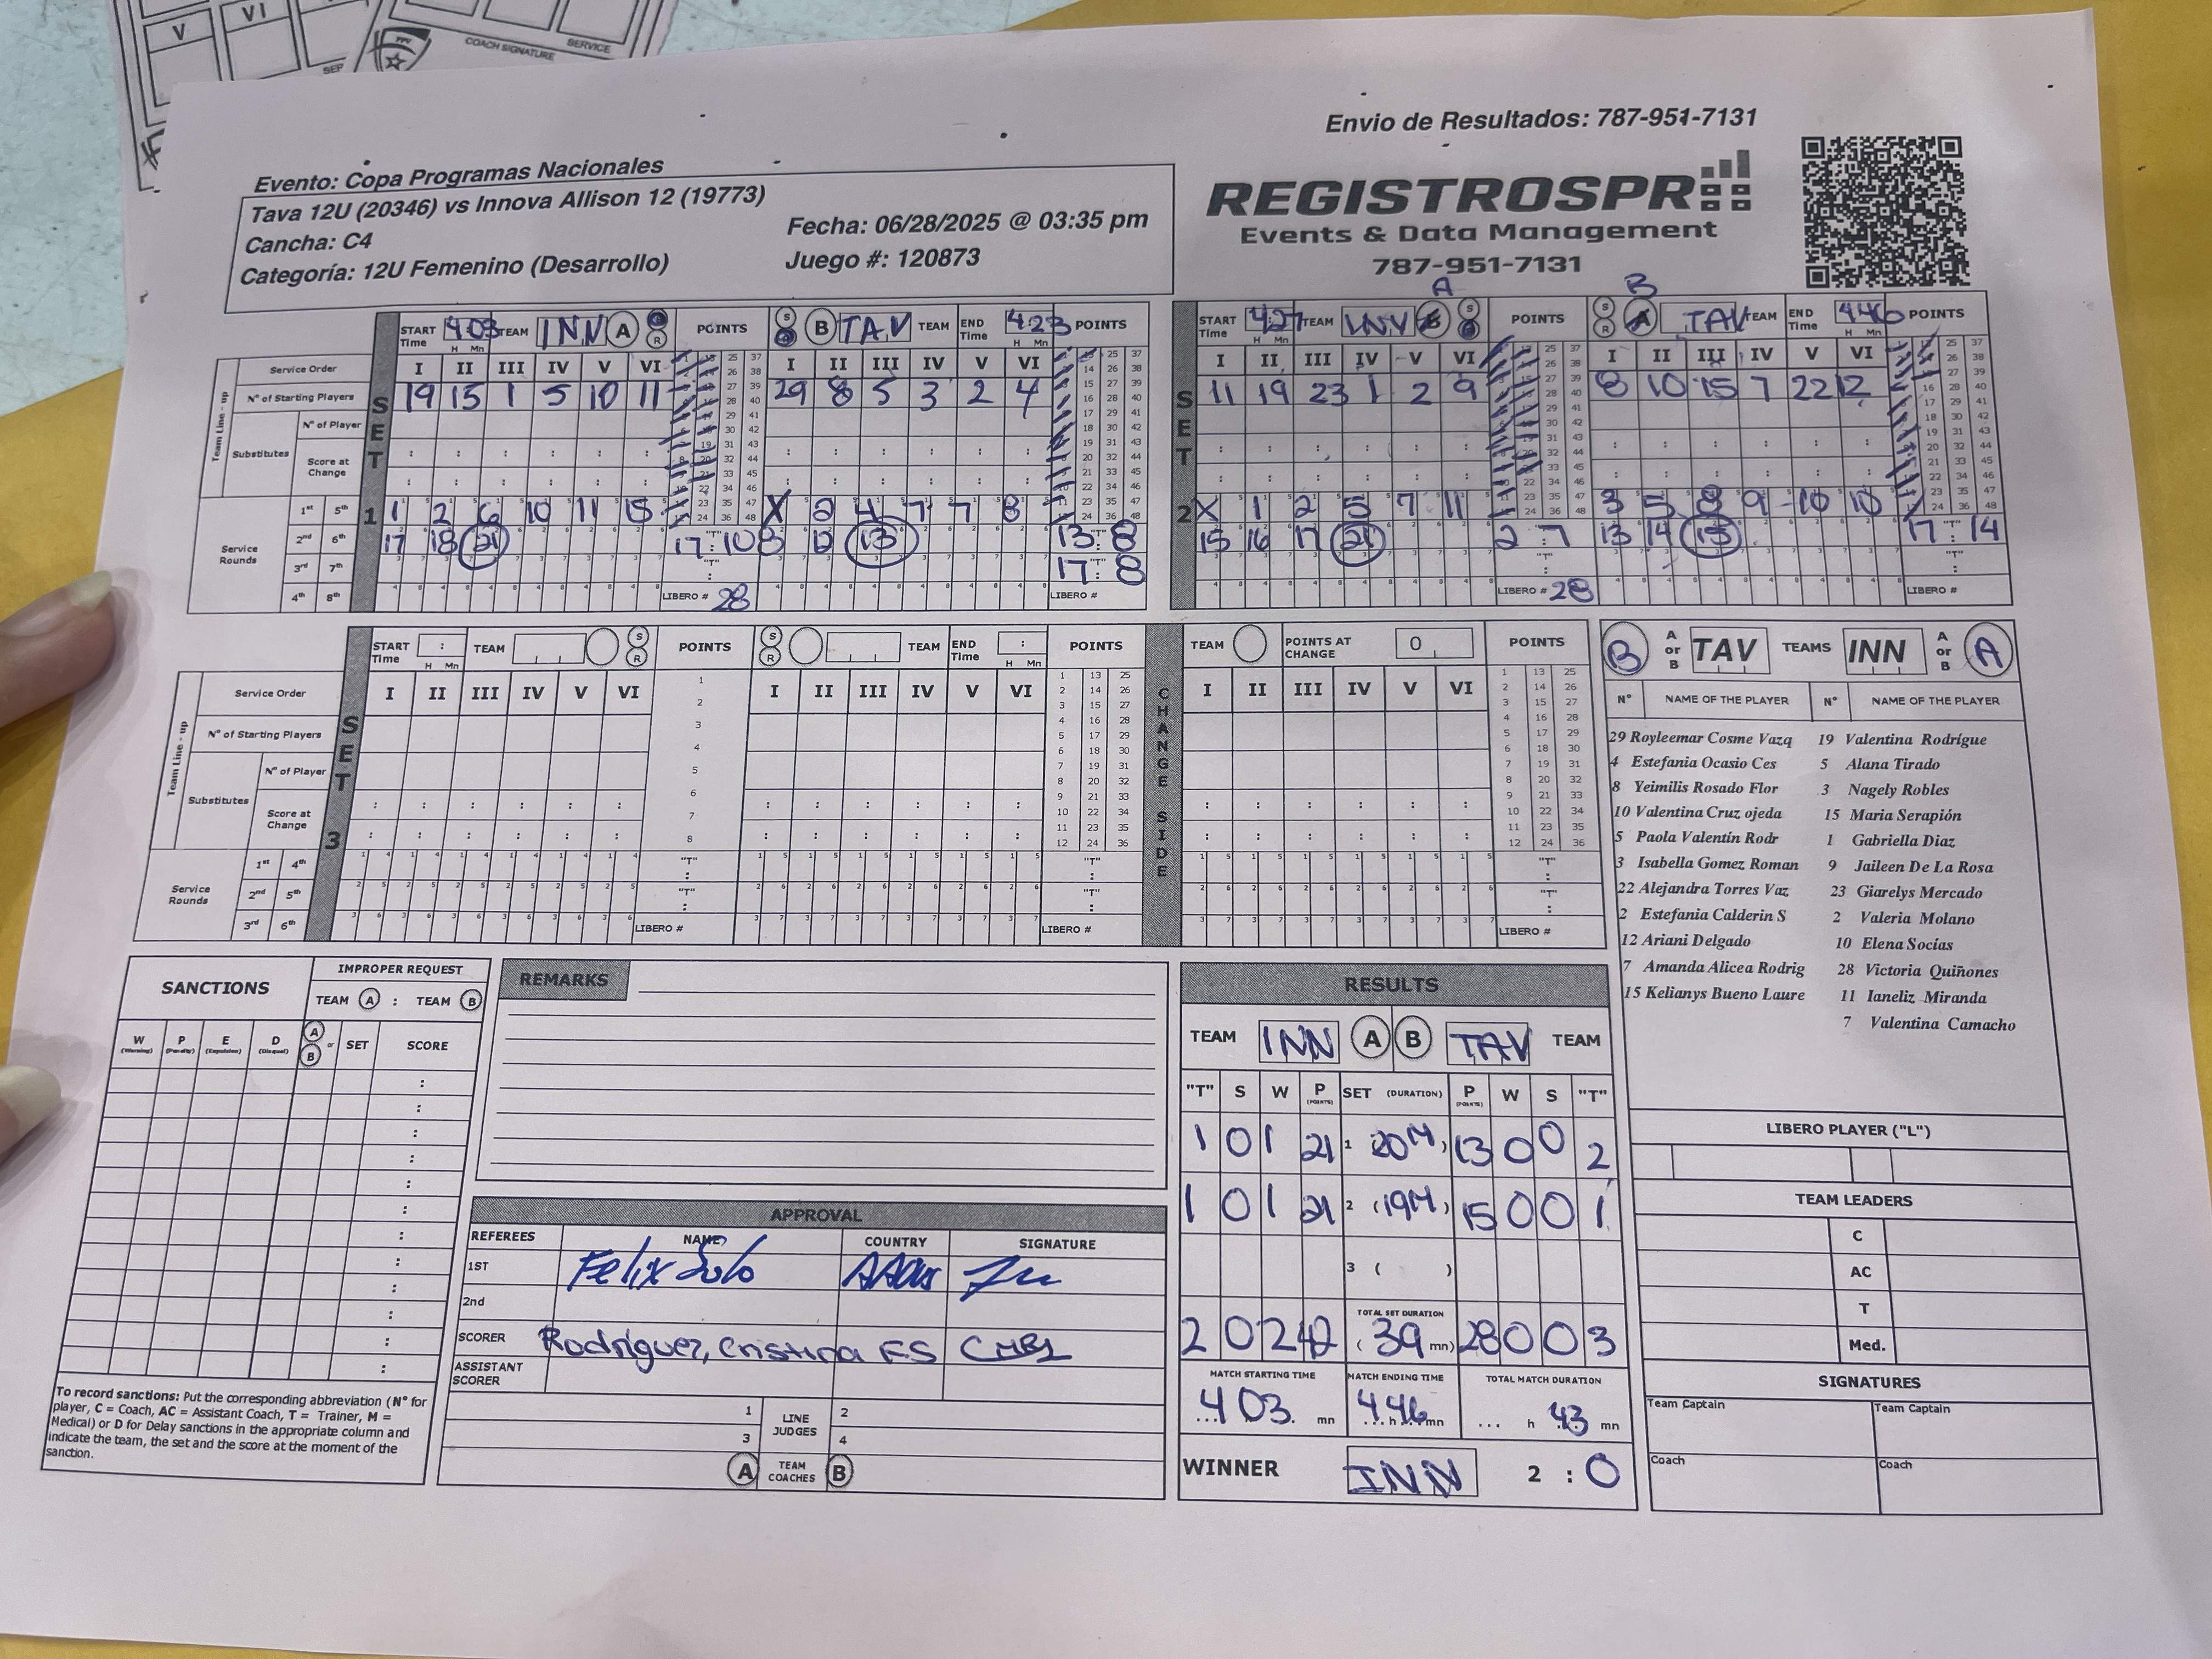 V VI
COACH SIGNATURE SERVICE
Envio de Resultados: 787-951-7131
Evento: Copa Programas Nacionales
Tava 12U (20346) vs Innova Allison 12 (19773)
Cancha: C4
Fecha: 06/28/2025 @ 03:35 pm
Categoría: 12U Femenino (Desarrollo)
Juego #: 120873
REGISTROSPR
Events & Data Management
787-951-7131
START Time 4:03 TEAM INN A S R POINTS S R B TAV TEAM END Time 4:23 POINTS
H Mn
Service Order I II III IV V VI I II III IV V VI
Team Line - up
N° of Starting Players 19 15 1 5 10 11 29 8 5 3 2 4
Substitutes N° of Player
Score at Change
SET 1
Service Rounds
1st 5th 1 2 6 10 11 15 X 2 4 7 7 8
2nd 6th 17 18 21 17:10 8 12 13 13:8
3rd 7th "T" 17:8
4th 8th LIBERO # 28 LIBERO #
A B
START Time 4:27 TEAM INN S R POINTS S R A TAV TEAM END Time 4:46 POINTS
H Mn
I II III IV V VI I II III IV V VI
SET 2
11 19 23 1 2 9 8 10 15 7 22 12
X 1 2 5 7 11 3 5 8 9 10 10
15 16 17 21 2:7 13 14 15 17 "T" 14
LIBERO # 28 LIBERO #
START Time : TEAM S R POINTS S R TEAM END Time : POINTS
H Mn
Service Order I II III IV V VI I II III IV V VI
Team Line - up
N° of Starting Players
Substitutes N° of Player
Score at Change
SET 3
Service Rounds
1st 4th "T"
2nd 5th "T"
3rd 6th LIBERO # LIBERO #
CHANGE SIDE
TEAM POINTS AT CHANGE 0 POINTS
I II III IV V VI
"T"
"T"
LIBERO #
B A or B TAV TEAMS INN A or B A
N° NAME OF THE PLAYER N° NAME OF THE PLAYER
29 Royleemar Cosme Vazq 19 Valentina Rodrígue
4 Estefania Ocasio Ces 5 Alana Tirado
8 Yeimilis Rosado Flor 3 Nagely Robles
10 Valentina Cruz ojeda 15 Maria Serapión
5 Paola Valentín Rodr 1 Gabriella Diaz
3 Isabella Gomez Roman 9 Jaileen De La Rosa
22 Alejandra Torres Vaz 23 Giarelys Mercado
2 Estefania Calderin S 2 Valeria Molano
12 Ariani Delgado 10 Elena Socías
7 Amanda Alicea Rodrig 28 Victoria Quiñones
15 Kelianys Bueno Laure 11 Ianeliz Miranda
7 Valentina Camacho
LIBERO PLAYER ("L")
TEAM LEADERS
C
AC
T
Med.
SIGNATURES
Team Captain Team Captain
Coach Coach
SANCTIONS
IMPROPER REQUEST
TEAM A : TEAM B
W (Warning) P (Penalty) E (Expulsion) D (Disqual) A or B SET SCORE
To record sanctions: Put the corresponding abbreviation (N° for
player, C = Coach, AC = Assistant Coach, T = Trainer, M =
Medical) or D for Delay sanctions in the appropriate column and
indicate the team, the set and the score at the moment of the
sanction.
REMARKS
APPROVAL
REFEREES NAME COUNTRY SIGNATURE
1ST Felix
2nd
SCORER Rodríguez, Cristina
ASSISTANT SCORER
1 LINE JUDGES 2
3 4
A TEAM COACHES B
RESULTS
TEAM INN A B TAV TEAM
"T" S W P (POINTS) SET (DURATION) P (POINTS) W S "T"
1 0 1 21 1 20M) 13 0 0 2
1 0 1 21 2 (19M) 15 0 0 1
3 ( )
TOTAL SET DURATION
2 0 2 42 (39 mn) 28 0 0 3
MATCH STARTING TIME MATCH ENDING TIME TOTAL MATCH DURATION
4 03 mn 4 h 46 mn ... h 43 mn
WINNER INN 2 : 0